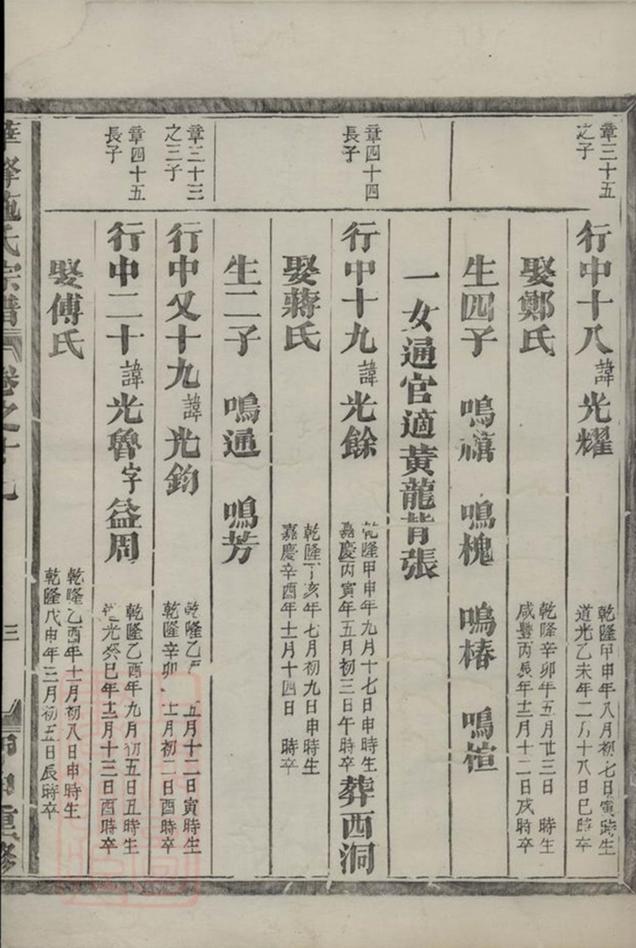 章三十五
之子
行中十八諱光耀
乾隆甲申年八月初七日寅時生
道光乙未年二月十八日巳時卒
娶鄭氏
乾隆辛卯年五月廿三日 時生
咸豐丙辰年十二月十二日戌時卒
生四子 鳴禧 鳴槐 鳴椿 鳴楦
一女通官適黃龍背張
章四十四
長子
行中十九諱光餘
乾隆甲申年九月十七日申時生
嘉慶丙寅年五月初三日午時卒
葬西洞
娶蔣氏
乾隆丁亥年七月初九日申時生
嘉慶辛酉年十一月十四日 時卒
生二子 鳴通 鳴芳
章三十三
之三子
行中又十九諱光鈞
乾隆乙 五月十二日寅時生
乾隆辛卯 十月初二日酉時卒
章四十五
長子
行中二十諱光魯字益周
乾隆乙酉年九月初五日丑時生
道光癸巳年十二月十三日酉時卒
娶傅氏
乾隆乙酉年十一月初八日申時生
乾隆戊申年三月初五日辰時卒
華峰施氏宗譜 卷之十九 三 重修